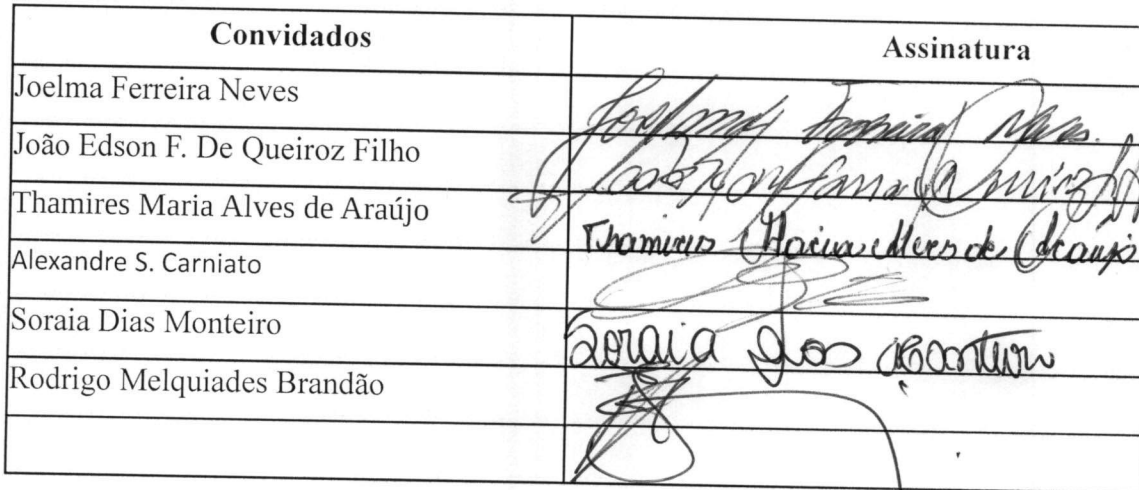 Convidados Assinatura
Joelma Ferreira Neves Joelma Ferreira Neves
João Edson F. De Queiroz Filho
Thamires Maria Alves de Araújo Thamires Maria Alves de Araujo
Alexandre S. Carniato
Soraia Dias Monteiro Soraia Dias Monteiro
Rodrigo Melquiades Brandão